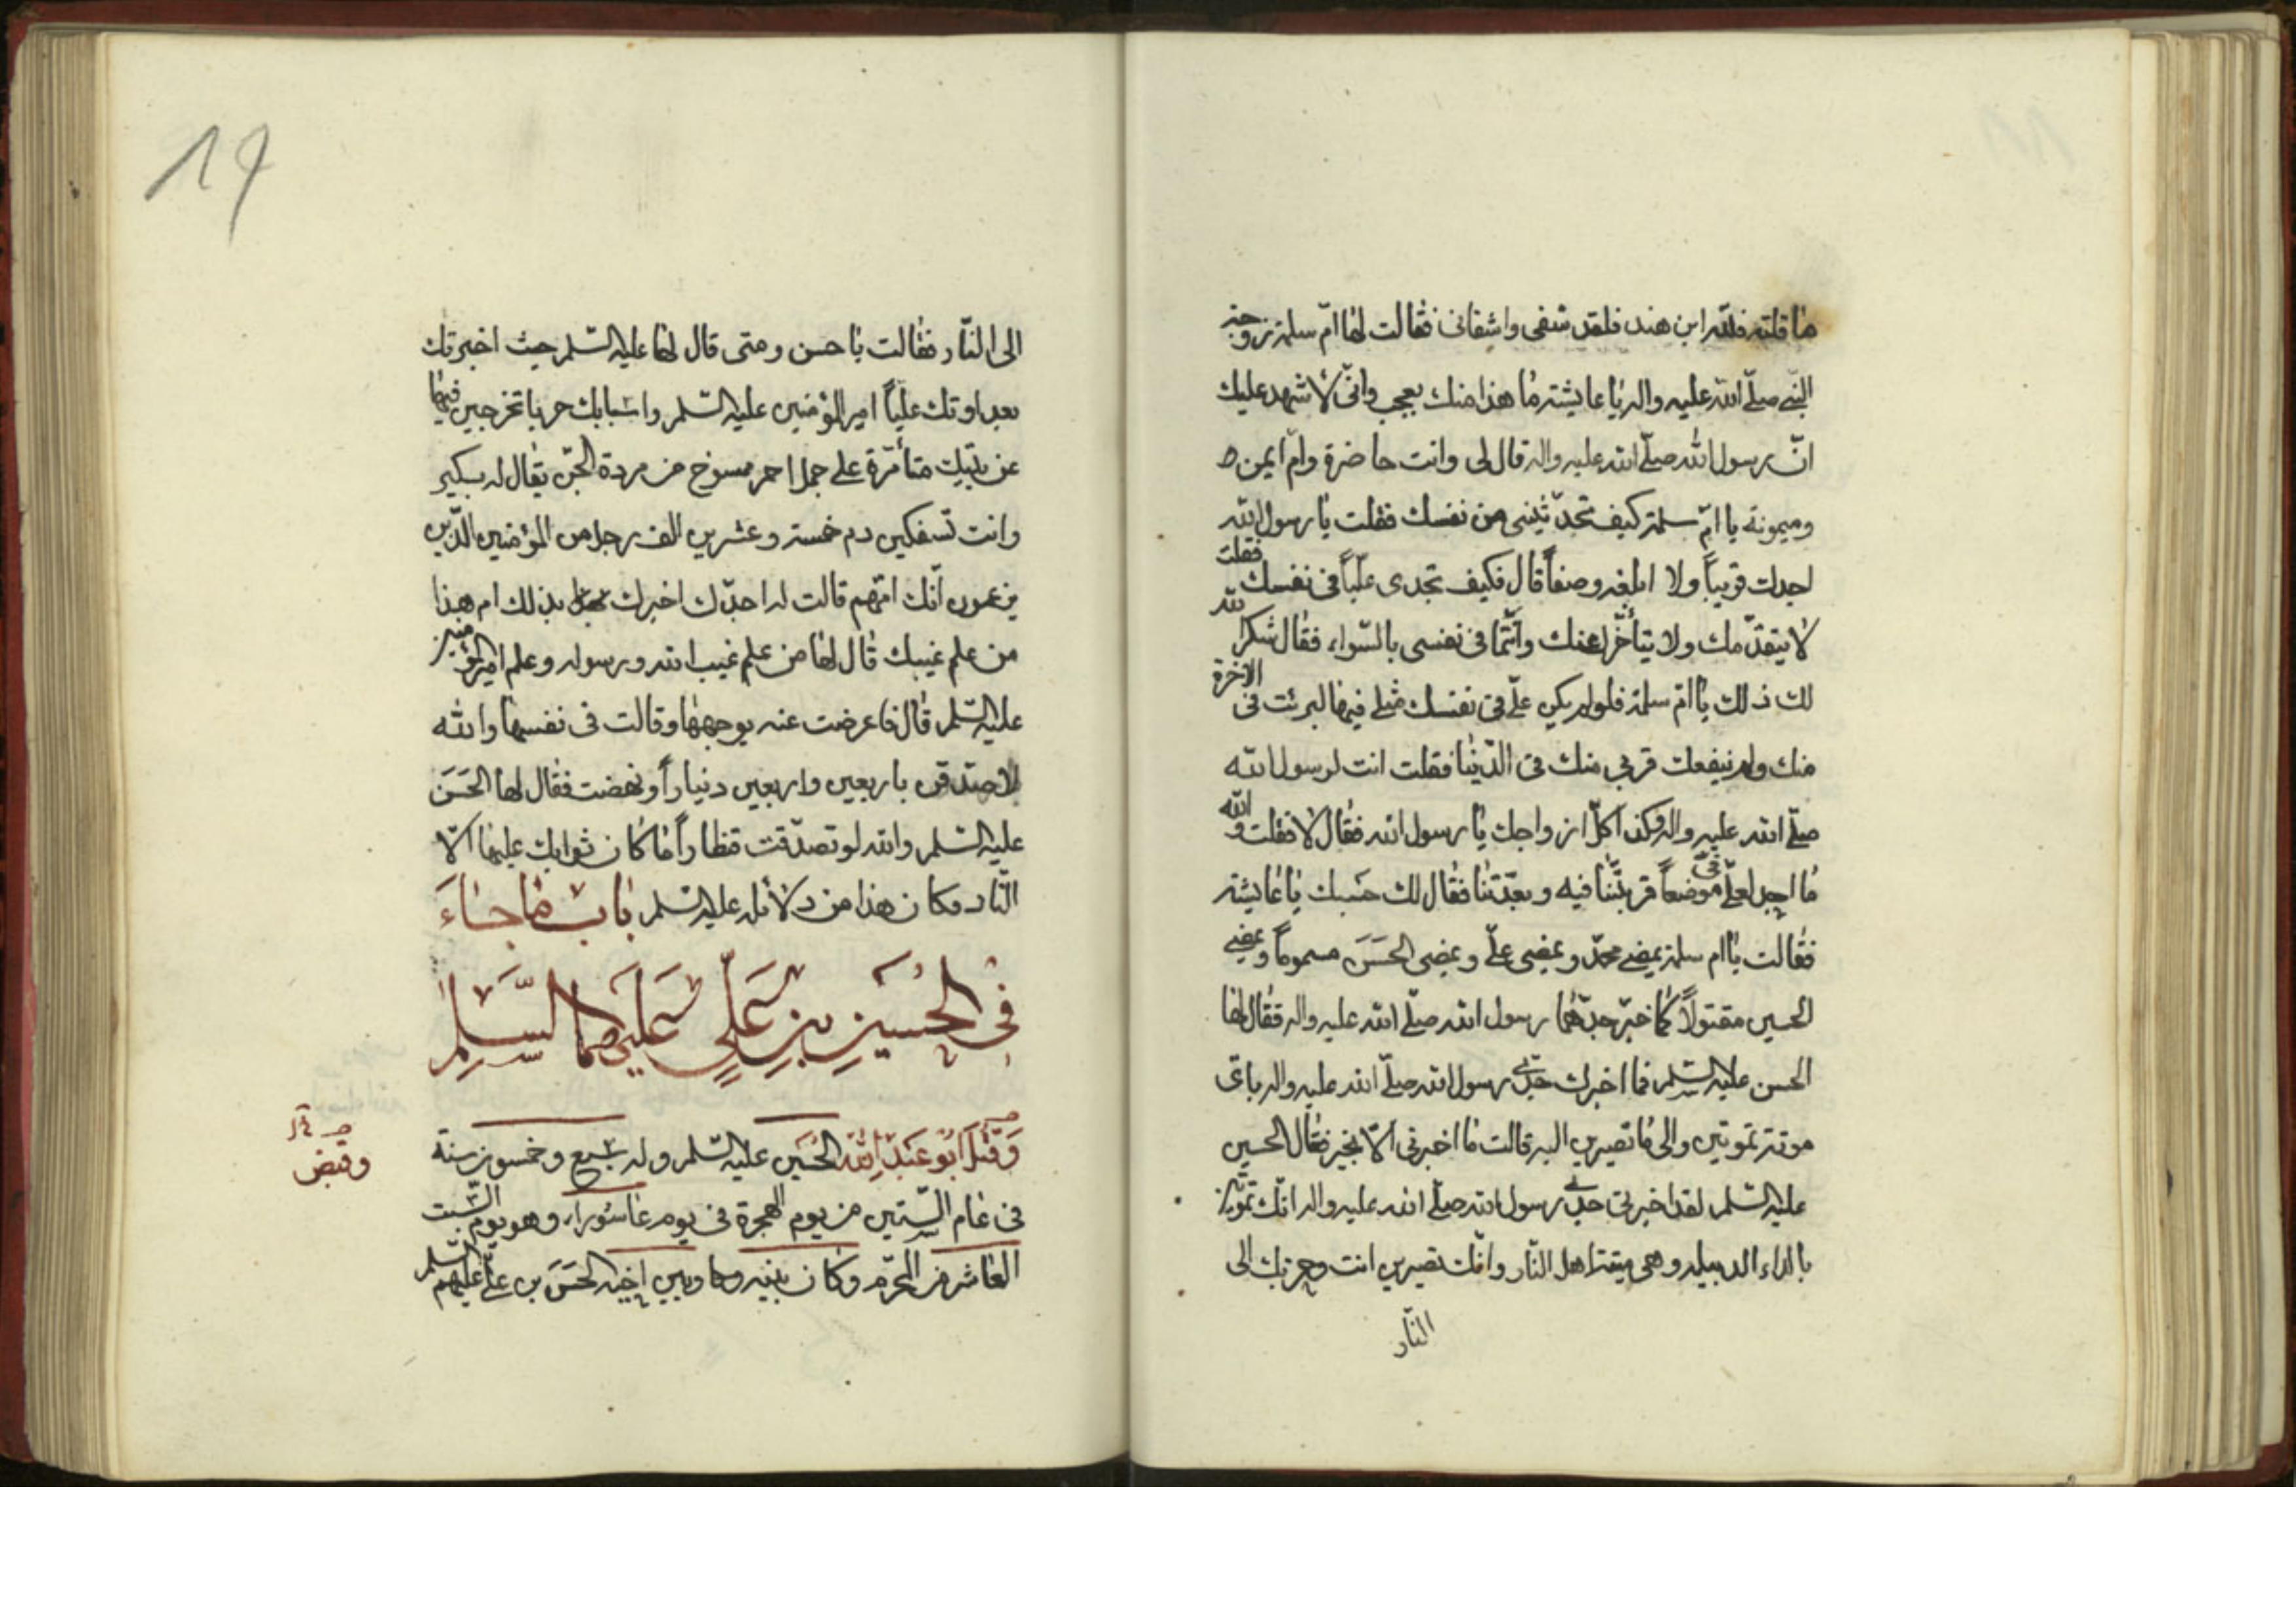 ما قلته فلله ابن هند فلقد شفى واشفانى فقالت لها امّ سلمة زوجة
النّبى صلّى الله عليه واله يا عايشة ما هذا منك بعجب وانّى لاشهد عليك
انّ رسول الله صلّى الله عليه واله قال لى وانت حاضرة وامّ ايمن
وميمونة يا امّ سلمة كيف تجدّثينى من نفسك فقلت يا رسول الله
اجدك قريباً ولا ابلغه وصفاً قال فكيف تجدى عليّاً فى نفسك فقلت
لا يتقدّمك ولا يتأخّر عنك وانّتما فى نفسى بالسّواء فقال شكر الله
لك ذلك يا امّ سلمة فلو لم يكن علىّ فى نفسك مثلى فيها لبرئت فى الاخرة
منك ولم ينفعك قربى منك فى الدّنيا فقلت انت لرسول الله
صلّى الله عليه واله وكذا كلّ ازواجك يا رسول الله فقال لا فقلت والله
ما اجد لعلىّ فىّ موضعاً قربتنا فيه وبعّدتنا فقال لك حسبك يا عايشة
فقالت يا ام سلمة يمضى محمّد ويمضى علىّ ويمضى الحَسَن مسموماً ويمضى
الحسين مقتولاً كما خبّر جدّهما رسول الله صلّى الله عليه واله فقال لها
الحسن عليه السّلم فما اخبرك جدّى رسول الله صلّى الله عليه واله باىّ
موتة تموتين والى ما تصيرين اليه قالت ما اخبرنى الّا بخير فقال الحسين
عليه السّلم لقد اخبرنى جدّى رسول الله صلّى الله عليه واله انّك تموتين
بالداء الدبيله وهى ميتة اهل النّار وانّك تصيرين انت وحزبك الى
النّار
الى النّار فقالت يا حسن ومتى قال لها عليه السّلم حيث اخبرتك
بعداوتك عليّاً امير المؤمنين عليه السّلم وانشابك حربا تخرجين فيها
عن بيتك متأمّرة على جمل احمر ممسوخ من مردة الجنّ يقال له بكير
وانت تسفكين دم خمسة وعشرين الف رجل من المؤمنين الّذين
يزعمون انّك امّهم قالت له اجدّك اخبرك بذلك ام هذا
من علم غيبك قال لها من علم غيب الله ورسوله وعلم امير المؤمنين
عليه السّلم قال فاعرضت عنه بوجهها وقالت فى نفسها والله
لاصّدّقن باربعين واربعين ديناراً ونهضت فقال لها الحَسَن
عليه السّلم والله لو تصدّقت قنطاراً ما كان ثوابك عليها الّا
النّار وكان هذا من دلائله عليه السّلم باب ما جاءَ
فى الحُسَينِ بنِ عَلىٍّ عَلَيهمَا السَّلم
وَقُتِلَ اَبُو عَبْدِ اللهِ الحُسَين عليه السّلم وله سبع وخمسون سنة
وقبض
فى عام السّتين من يوم الهجرة فى يوم عاشوراء وهو يوم السّبت
العاشر من المحرّم وكان بينه وما وبين اخيه الحَسَن بن علىّ عليهم السّلم